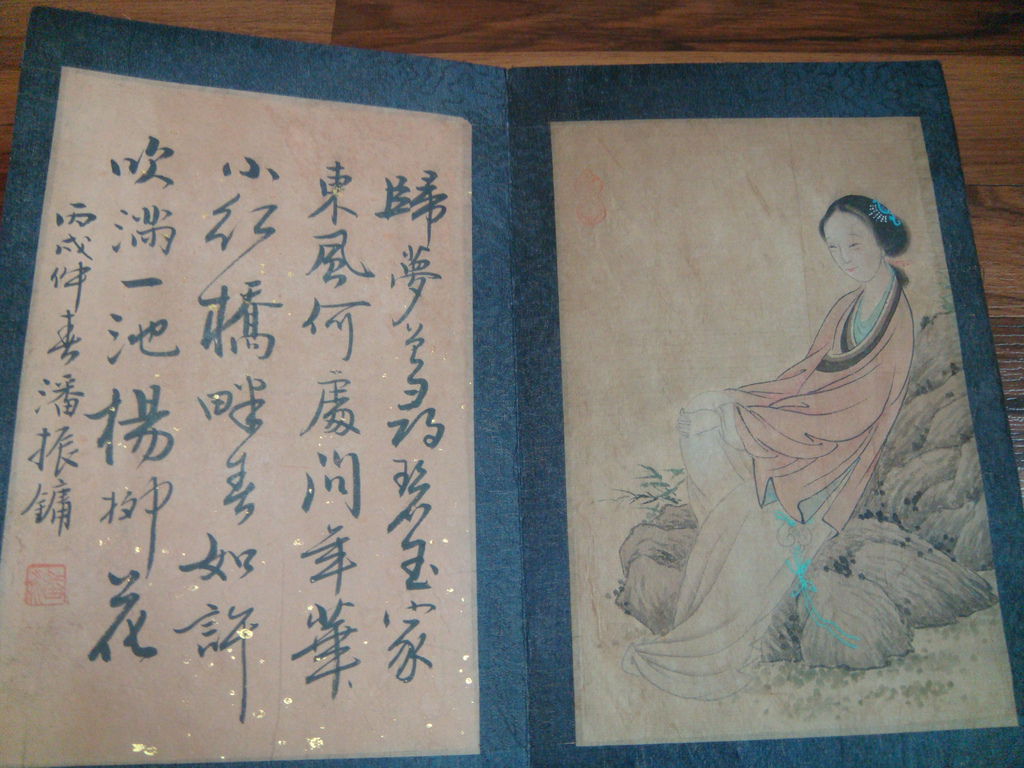 歸夢尋碧玉家
東風何處問年華
小紅橋畔春如許
吹滿一池楊柳花
丙戌仲春潘振鏞